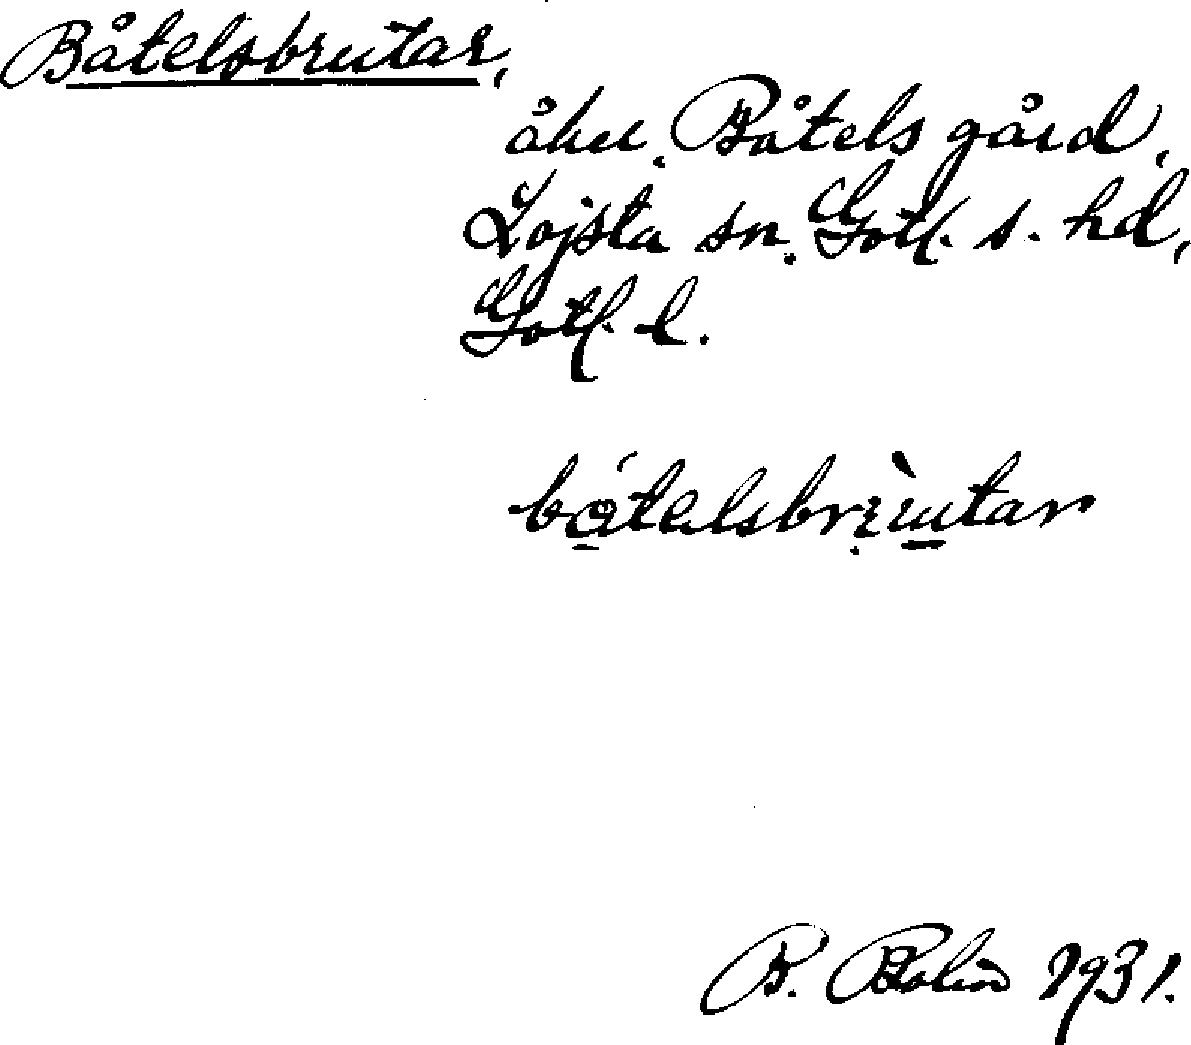 Båtelsbrutar,
åker, Båtels gård,
Lojsta sn. Gotl. s. hd,
Gotl. l.
bátelsbrùtar
B. Bolin 1931.